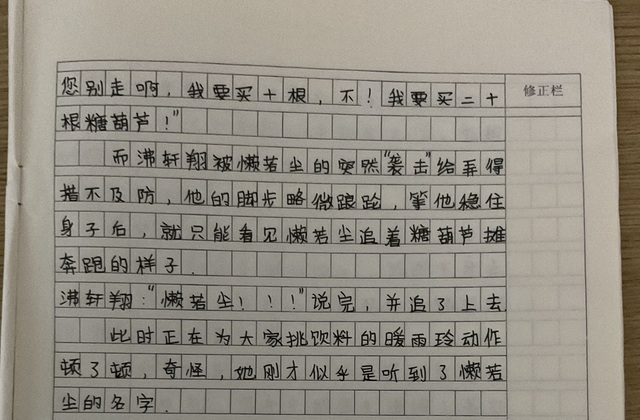 您别走啊，我要买十根，不！我要买二十
修正栏
根糖葫芦！”
而沸轩翔被懒若尘的突然“袭击”给弄得
措不及防，他的脚步略微踉跄，等他稳住
身子后，就只能看见懒若尘追着糖葫芦摊
奔跑的样子．
沸轩翔：“懒若尘！！！”说完，并追了上去
此时正在为大家挑饮料的暖雨玲动作
顿了顿，奇怪，她刚才似乎是听到了懒若
尘的名字．